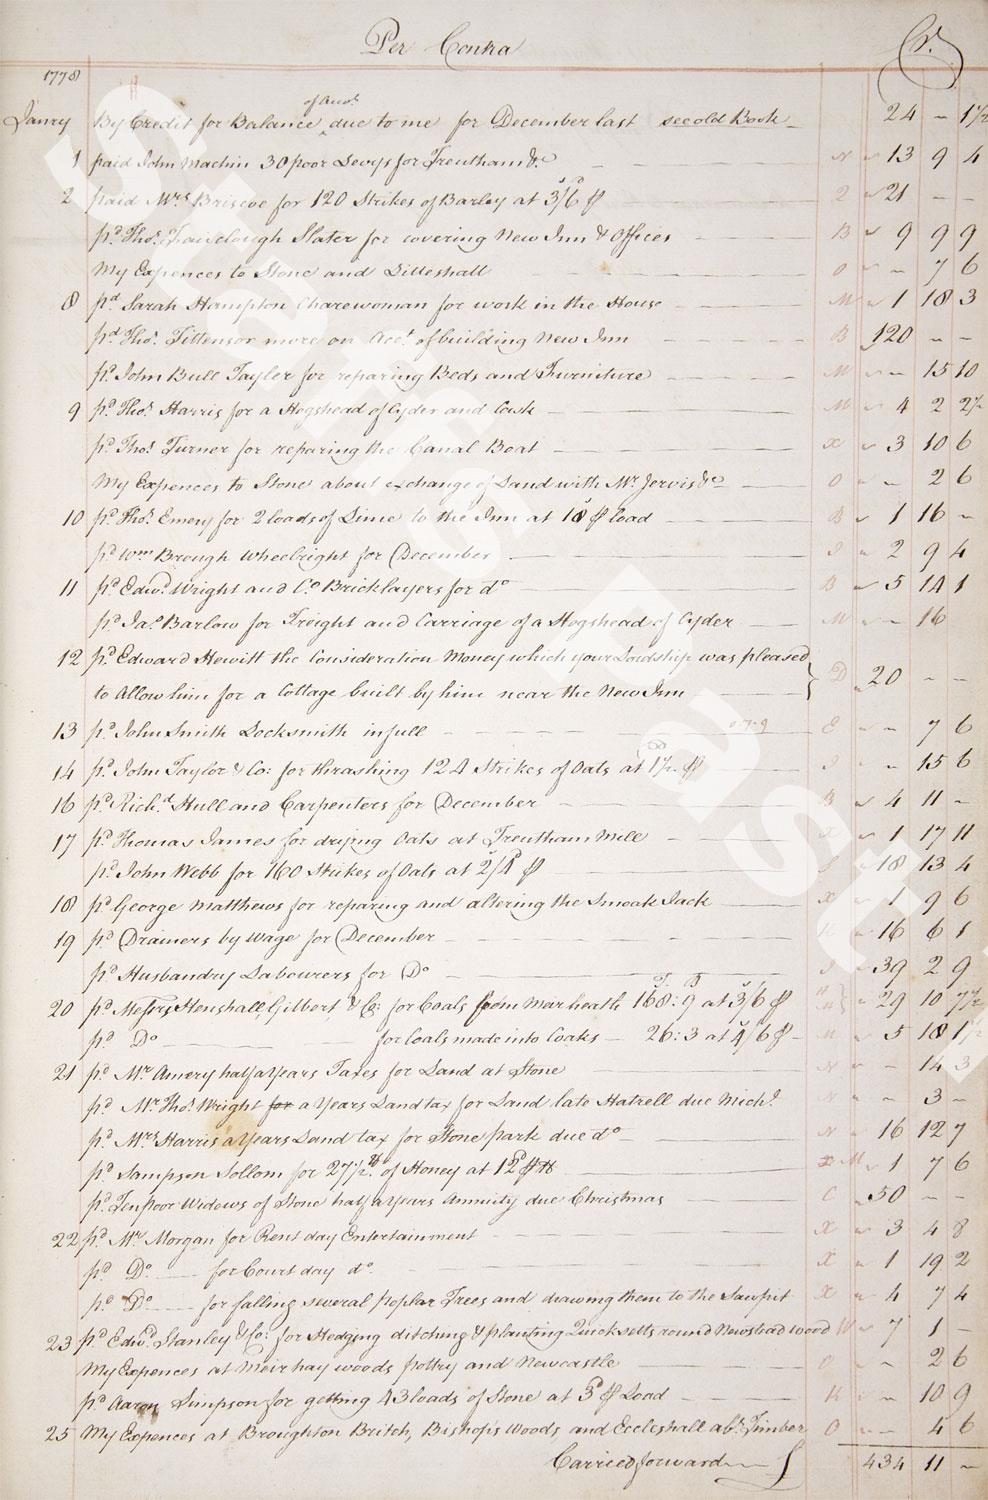 Per Contra Cr.
1778
Janry By Credit for Balance of Acct. due to me for December last see old Book 24 - 1½
1 paid John Machin 30 poor Levys for Trentham &c N 13 9 4
2 paid Mrs Briscoe for 120 Strikes of Barley at 3s/6d ⅌ 2 21 - -
pd. Thos. Fairclough Slater for covering New Inn & Offices B 9 9 9
My Expences to Stone and Lilleshall O - 7 6
8 pd Sarah Hampton Charewoman for work in the House M 1 18 3
pd Thos. Tittensor more on Acct. of building New Inn B 120 - -
pd. John Bull Taylor for repairing Beds and Furniture M - 15 10
9 pd. Thos. Harris for a Hogshead of Cyder and Cask M 4 2 2½
pd. Thos. Turner for repairing the Canal Boat X 3 10 6
My Expences to Stone about exchange of Land with Mr. Jervis &c O - 2 6
10 pd. Thos. Emery for 2 loads of Lime to the Inn at 18s ⅌ load B 1 16 -
pd. Wm Brough Wheelright for December I 2 9 4
11 pd. Edwd. Wright and Co. Bricklayers for do B 5 14 1
pd. Jas. Barlow for Freight and Carriage of a Hogshead of Cyder M - 16
12 pd. Edward Hewitt the Consideration Money which your Lordship was pleased
to Allow him for a Cottage built by him near the New Inn D 20 - -
13 pd. John Smith Locksmith in full 0-7-9 E - 7 6
14 pd. John Taylor & Co: for thrashing 124 Strikes of Oats at 1½d ⅌ I - 15 6
16 pd Richd. Hull and Carpenters for December B 4 11 -
17 pd. Thomas James for drying Oats at Trentham Mill X 1 17 11
pd. John Webb for 160 Strikes of Oats at 2s/4d ⅌ I 18 13 4
18 pd. George Matthews for repairing and altering the Smoak Jack X 1 9 6
19 pd Drainers by Wage for December K 16 6 1
pd Husbandry Labourers for Do I 39 2 9
20 pd Messrs Henshall, Gilbert & Co: for Coals from Marheath 168:9 at 3s/6d ⅌ 29 10 7½
pd Do for Coals made into Coaks 26:3 at 4s/6 ⅌ M 5 18 1½
21 pd Mr Amery half a Years Taxes for Land at Stone N - 14 3
pd. Mr Thos. Wright for a Years Landtax for Land late Hatrell due Michs. N - 3 -
pd. Mrs Harris a Years Land tax for Stone park due do N 16 12 7
pd. Sampson Sollom for 27½lb of Honey at 12d ⅌ lb X M 1 7 6
pd. Ten poor Widows of Stone half a Years Annuity due Christmas C 50 - -
22 pd. Mr Morgan for Rent day Entertainment X 3 4 8
pd Do. for Court day do. X 1 19 2
pd. Do. for falling several poplar Trees and drawing them to the Sawpit X 4 7 4
23 pd Edwd. Stanley & Co: for Hedging ditching & planting Quicksetts round Newstead wood W 7 1 -
My Expences at Meir hay woods pottry and Newcastle O - 2 6
pd Aaron Simpson for getting 43 loads of Stone at 3d ⅌ Load K - 10 9
25 My Expences at Broughton Britch, Bishops Woods, and Eccleshall abt. Timber O - 4 6
Carried forward £ 434 11 -